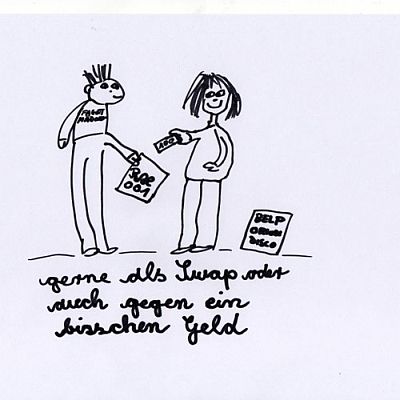 100
001
BELP
DISCO
gerne als Swap oder
auch gegen ein
bisschen Geld